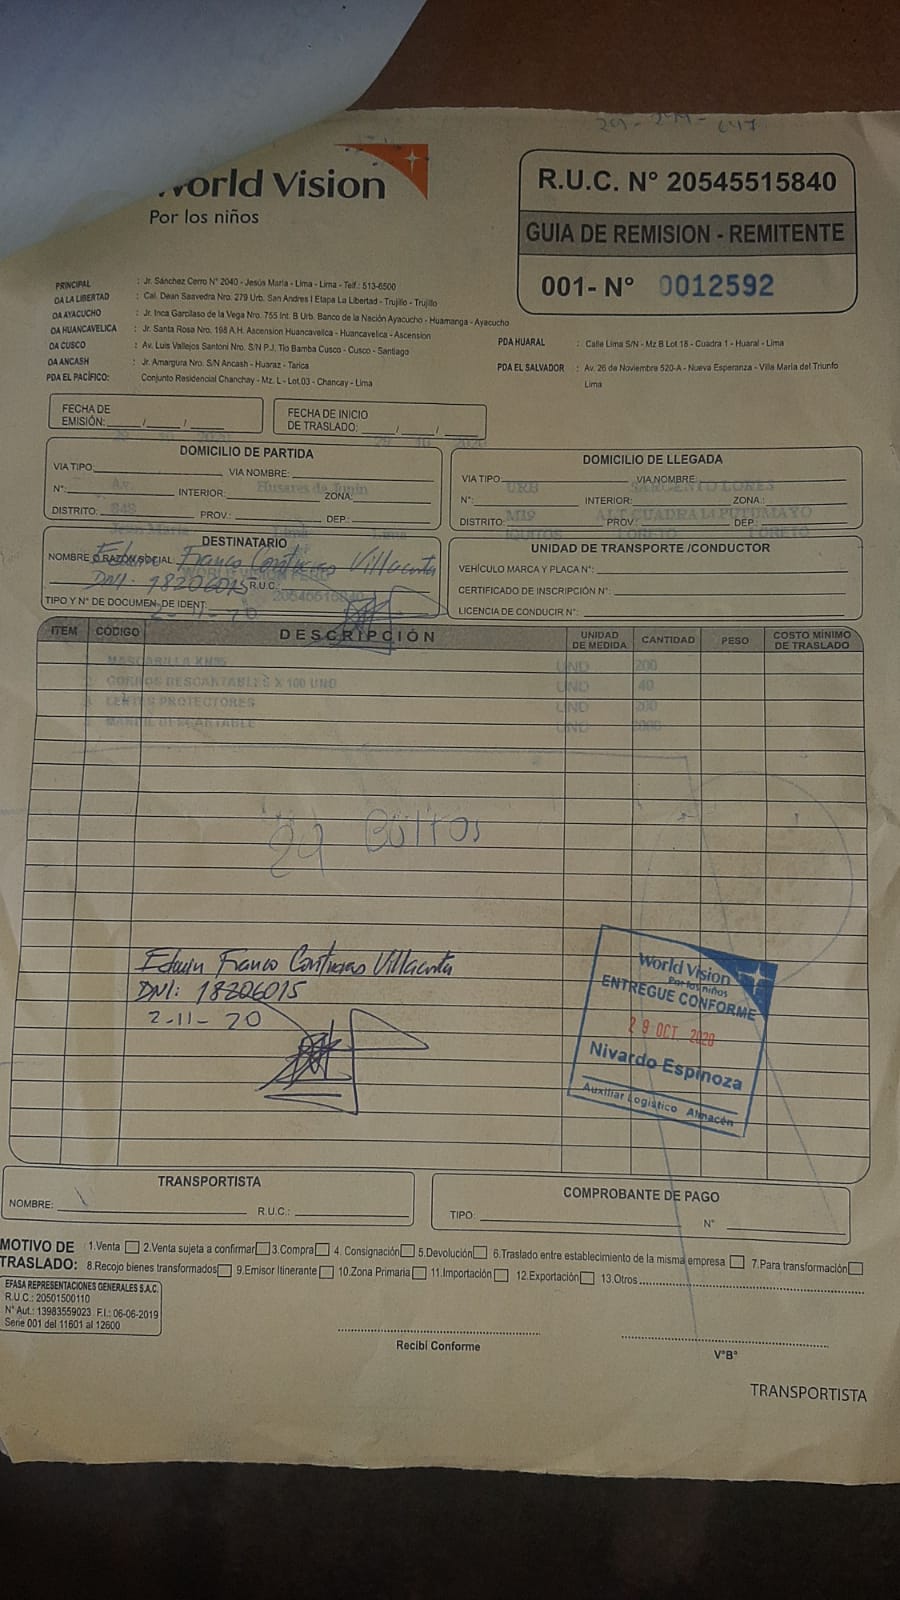 World Vision
Por los niños
R.U.C. N° 20545515840
GUIA DE REMISION - REMITENTE
001- N° 0012592
PRINCIPAL : Jr. Sánchez Cerro N° 2040 - Jesús María - Lima - Lima - Telf.: 513-6500
OA LA LIBERTAD : Cal. Dean Saavedra Nro. 279 Urb. San Andres I Etapa La Libertad - Trujillo - Trujillo
OA AYACUCHO : Jr. Inca Garcilaso de la Vega Nro. 755 Int. B Urb. Banco de la Nación Ayacucho - Huamanga - Ayacucho
OA HUANCAVELICA : Jr. Santa Rosa Nro. 198 A.H. Ascension Huancavelica - Huancavelica - Ascension
OA CUSCO : Av. Luis Vallejos Santoni Nro. S/N P.J. Tio Bamba Cusco - Cusco - Santiago
OA ANCASH : Jr. Amargura Nro. S/N Ancash - Huaraz - Tarica
PDA EL PACÍFICO: Conjunto Residencial Chanchay - Mz. L - Lot.03 - Chancay - Lima
PDA HUARAL : Calle Lima S/N - Mz B Lot 18 - Cuadra 1 - Huaral - Lima
PDA EL SALVADOR : Av. 26 de Noviembre 520-A - Nueva Esperanza - Villa Maria del Triunfo
Lima
FECHA DE
EMISIÓN: / /
FECHA DE INICIO
DE TRASLADO: / /
DOMICILIO DE PARTIDA
VIA TIPO: VIA NOMBRE:
Av. Husares de Junin
N°: INTERIOR: ZONA:
848
DISTRITO: PROV.: DEP.:
Jesus Maria Lima Lima
DOMICILIO DE LLEGADA
VIA TIPO: VIA NOMBRE:
URB SARGENTO LORES
N°: INTERIOR: ZONA.:
M19 ALT CUADRA 14 PUTUMAYO
DISTRITO: PROV.: DEP.:
IQUITOS LORETO LORETO
DESTINATARIO
NOMBRE O RAZON SOCIAL: Edwin Franco Contreras Villacorta
WORLD VISION PERU
DNI: 18206015 R.U.C.:
20545515840
TIPO Y N° DE DOCUMEN. DE IDENT:
2-11-20
UNIDAD DE TRANSPORTE /CONDUCTOR
VEHÍCULO MARCA Y PLACA N°:
CERTIFICADO DE INSCRIPCIÓN N°:
LICENCIA DE CONDUCIR N°:
ITEM CÓDIGO DESCRIPCIÓN UNIDAD DE MEDIDA CANTIDAD PESO COSTO MÍNIMO DE TRASLADO
MASCARILLA KN95 UND 200
GORROS DESCARTABLES X 100 UND UND 40
LENTES PROTECTORES UND 200
MANDIL DESCARTABLE UND 2000
29 Bultos
Edwin Franco Contreras Villacorta
DNI: 18206015
2-11-20
World Vision
Por los niños
ENTREGUE CONFORME
29 OCT 2020
Nivardo Espinoza
Auxiliar Logístico Almacén
TRANSPORTISTA
NOMBRE: R.U.C.:
COMPROBANTE DE PAGO
TIPO: N°
MOTIVO DE TRASLADO: 1.Venta 2.Venta sujeta a confirmar 3.Compra 4. Consignación 5.Devolución 6.Traslado entre establecimiento de la misma empresa 7.Para transformación
8.Recojo bienes transformados 9.Emisor Itinerante 10.Zona Primaria 11.Importación 12.Exportación 13.Otros
EFASA REPRESENTACIONES GENERALES S.A.C.
R.U.C.: 20501500110
N° Aut.: 13983559023 F.I.: 06-06-2019
Serie 001 del 11601 al 12600
Recibí Conforme
V°B°
TRANSPORTISTA